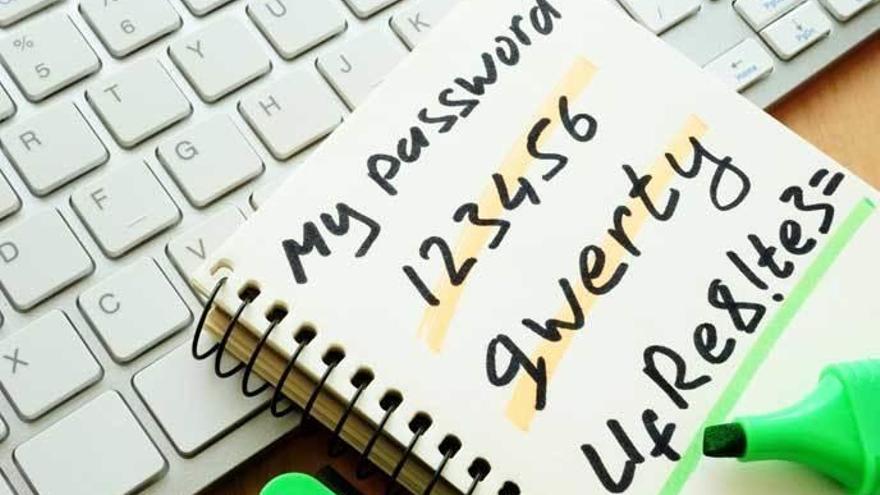 My password
123456
qwerty
UfRe8!te3=
%
5
6
T
Y
U
R
G
H
J
K
D
F
V
X
C
Home
PgUp
PgDn